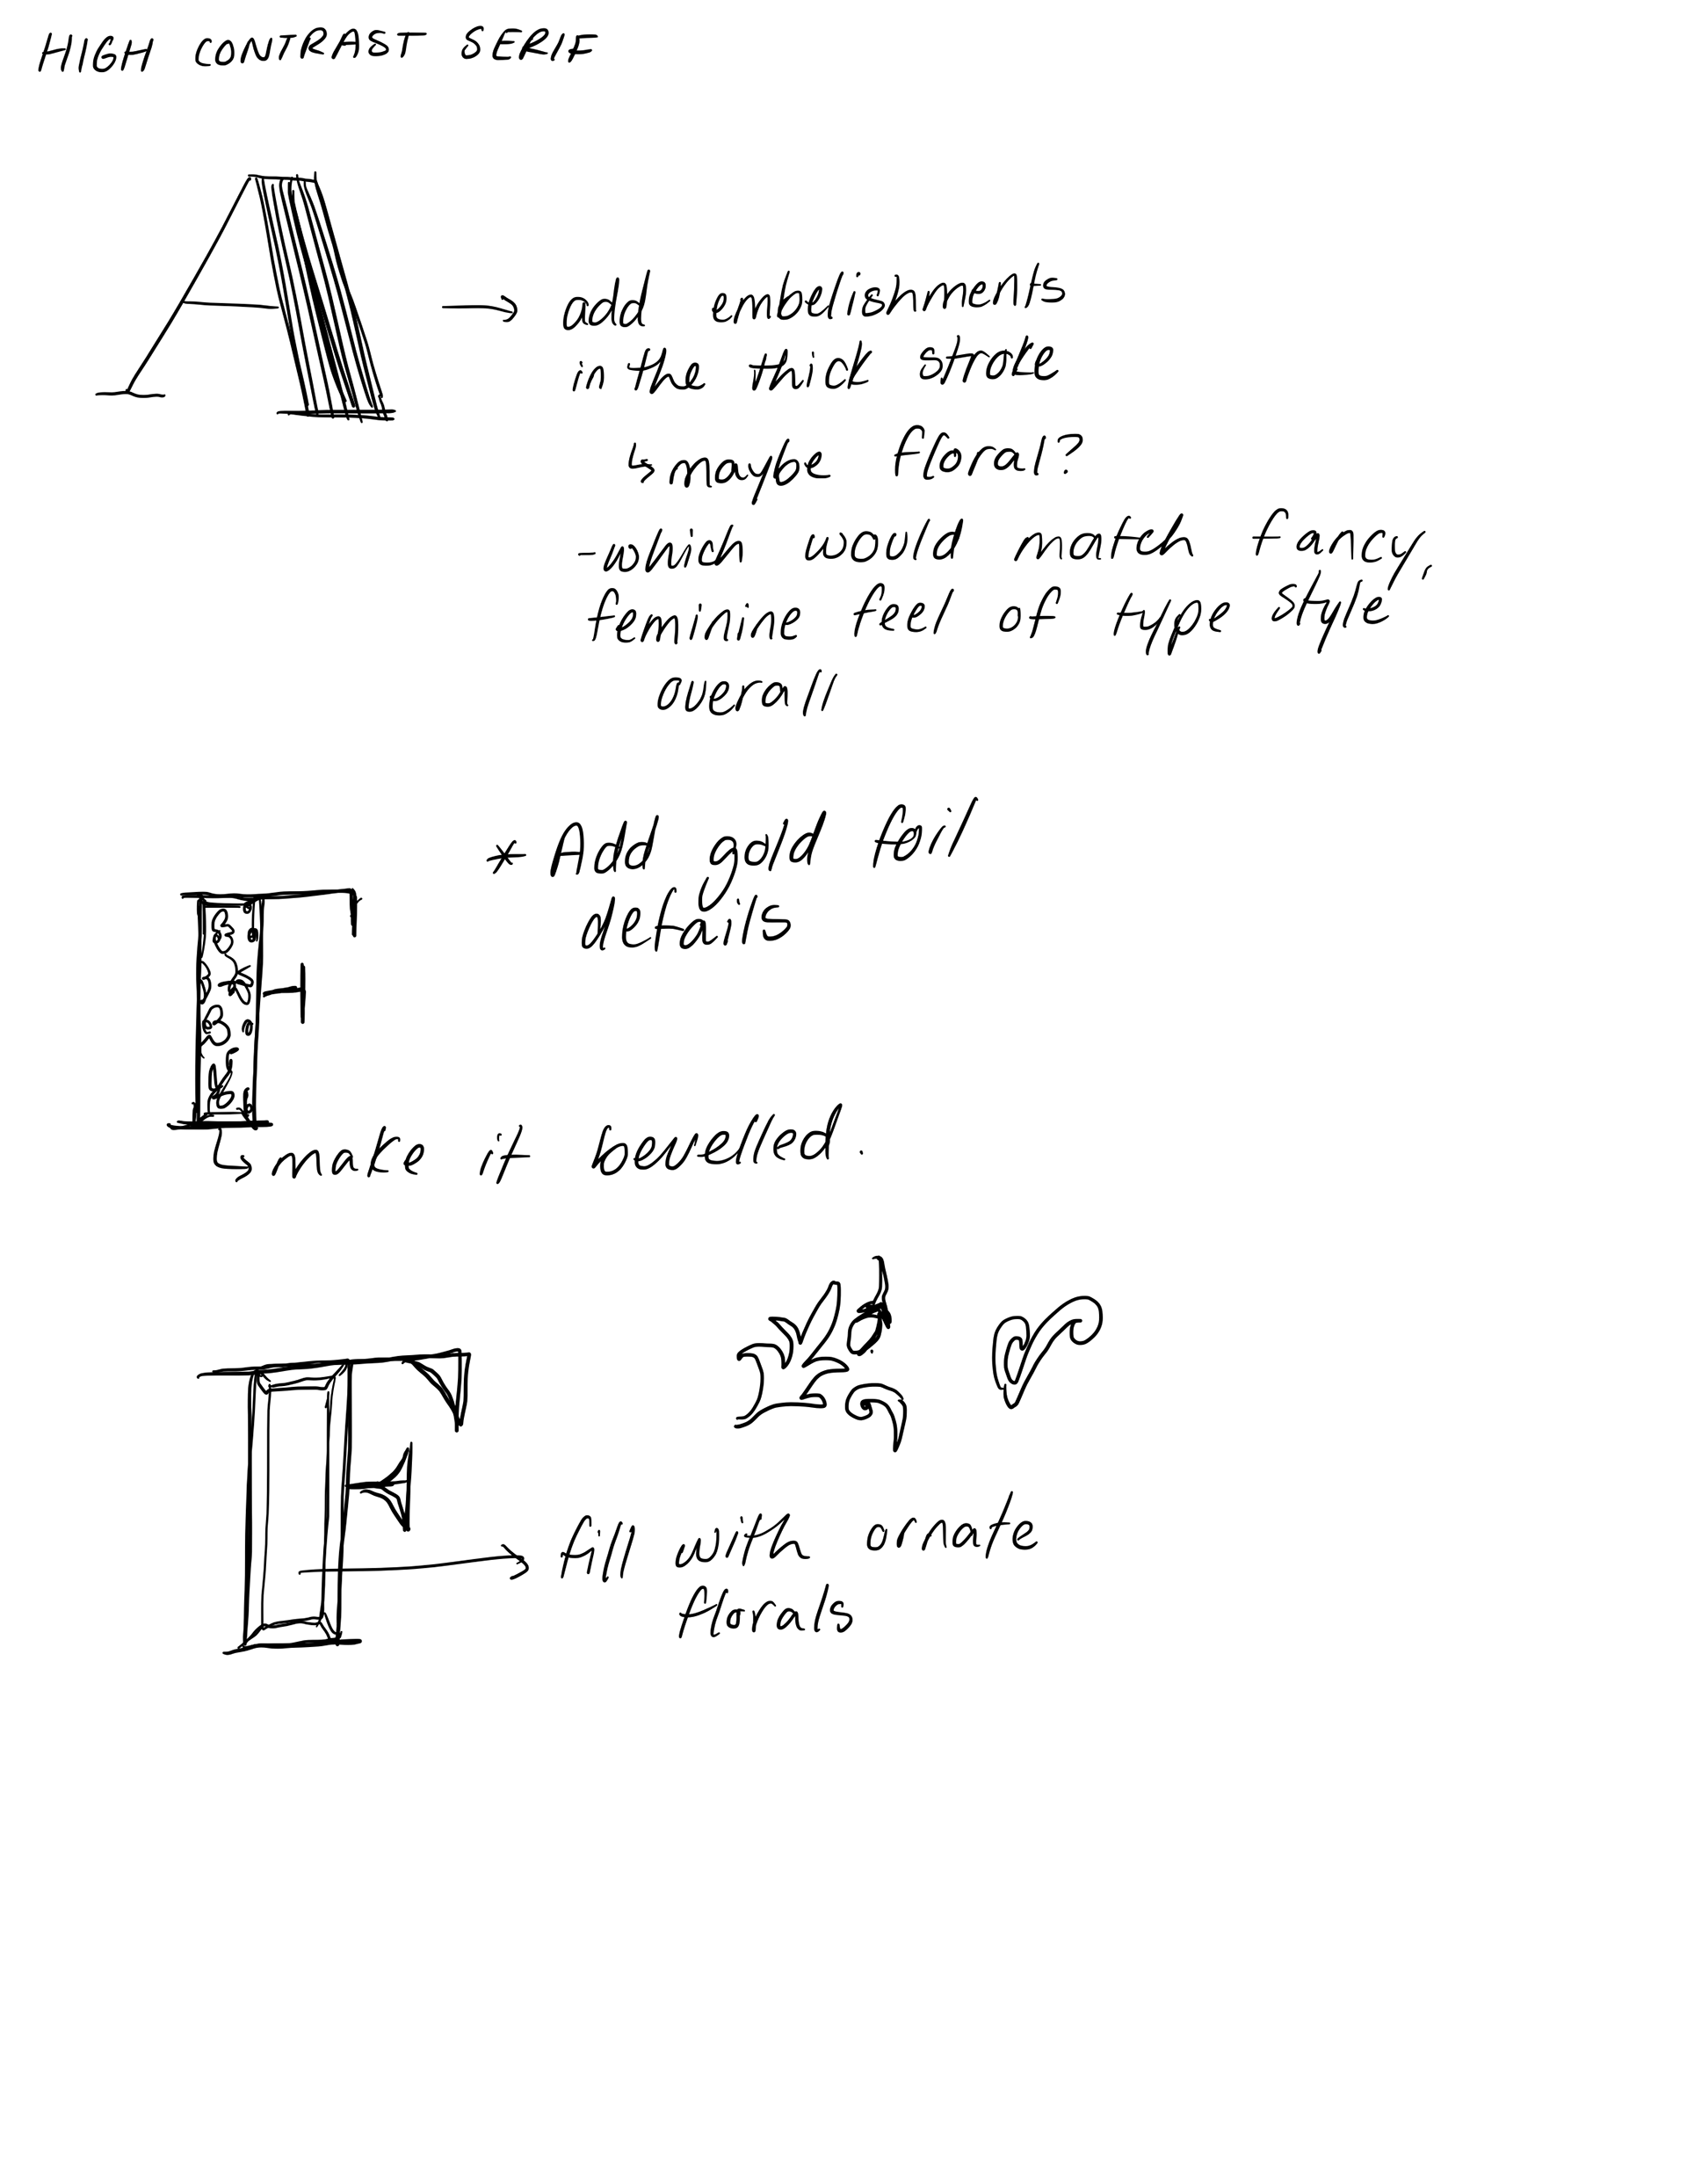 HIGH CONTRAST SERIF
A
→ add embelishments
in the thick stroke
↳ maybe floral?
-which would match fancy,
feminine feel of type style
overall
* Add gold foil
details
F
↳ make it bevelled.
F
→ fill with ornate
florals